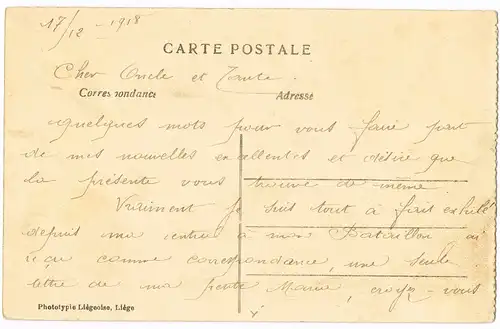 17/12 - 1918
CARTE POSTALE
Cher Oncle et Tante.
Correspondance
Adresse
Quelques mots pour vous faire part
de mes nouvelles excellentes et désire que
la présente vous trouve de même.
Vraiment je suis tout à fait exhilé
depuis ma rentrée à mon Bataillon ai
reçu comme correspondance, une seule
lettre de ma petite Maria, croyez-vous
Phototypie Liégeoise, Liége